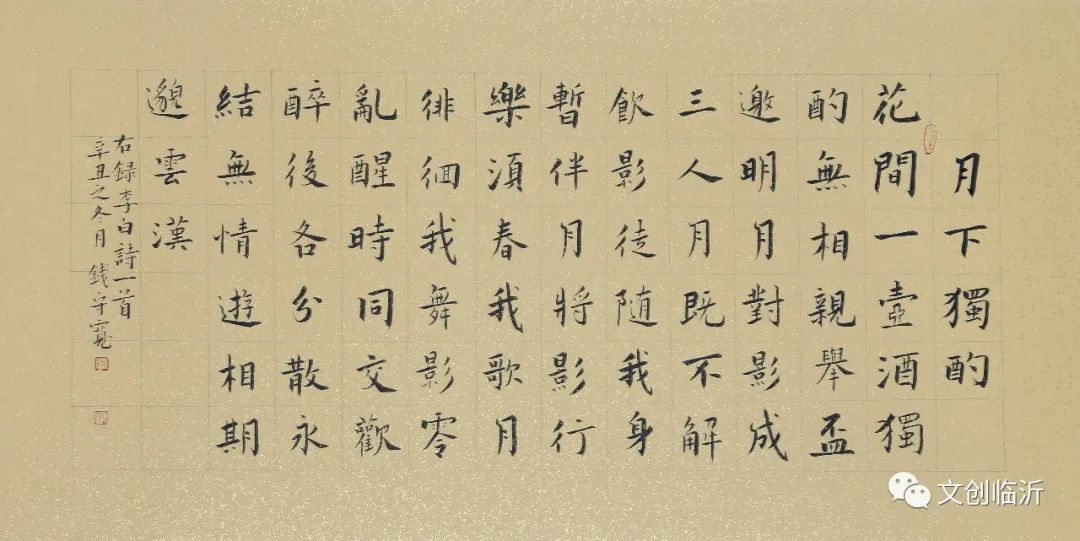 月下獨酌
花間一壺酒獨
酌無相親舉盃
邀明月對影成
三人月既不解
飲影徒随我身
暫伴月將影行
樂湏春我歌月
徘徊我舞影零
亂醒時同交歡
醉後各分散永
結無情遊相期
邈雲漢
右録李白詩一首
辛丑之冬月 錢守寬
文创临沂